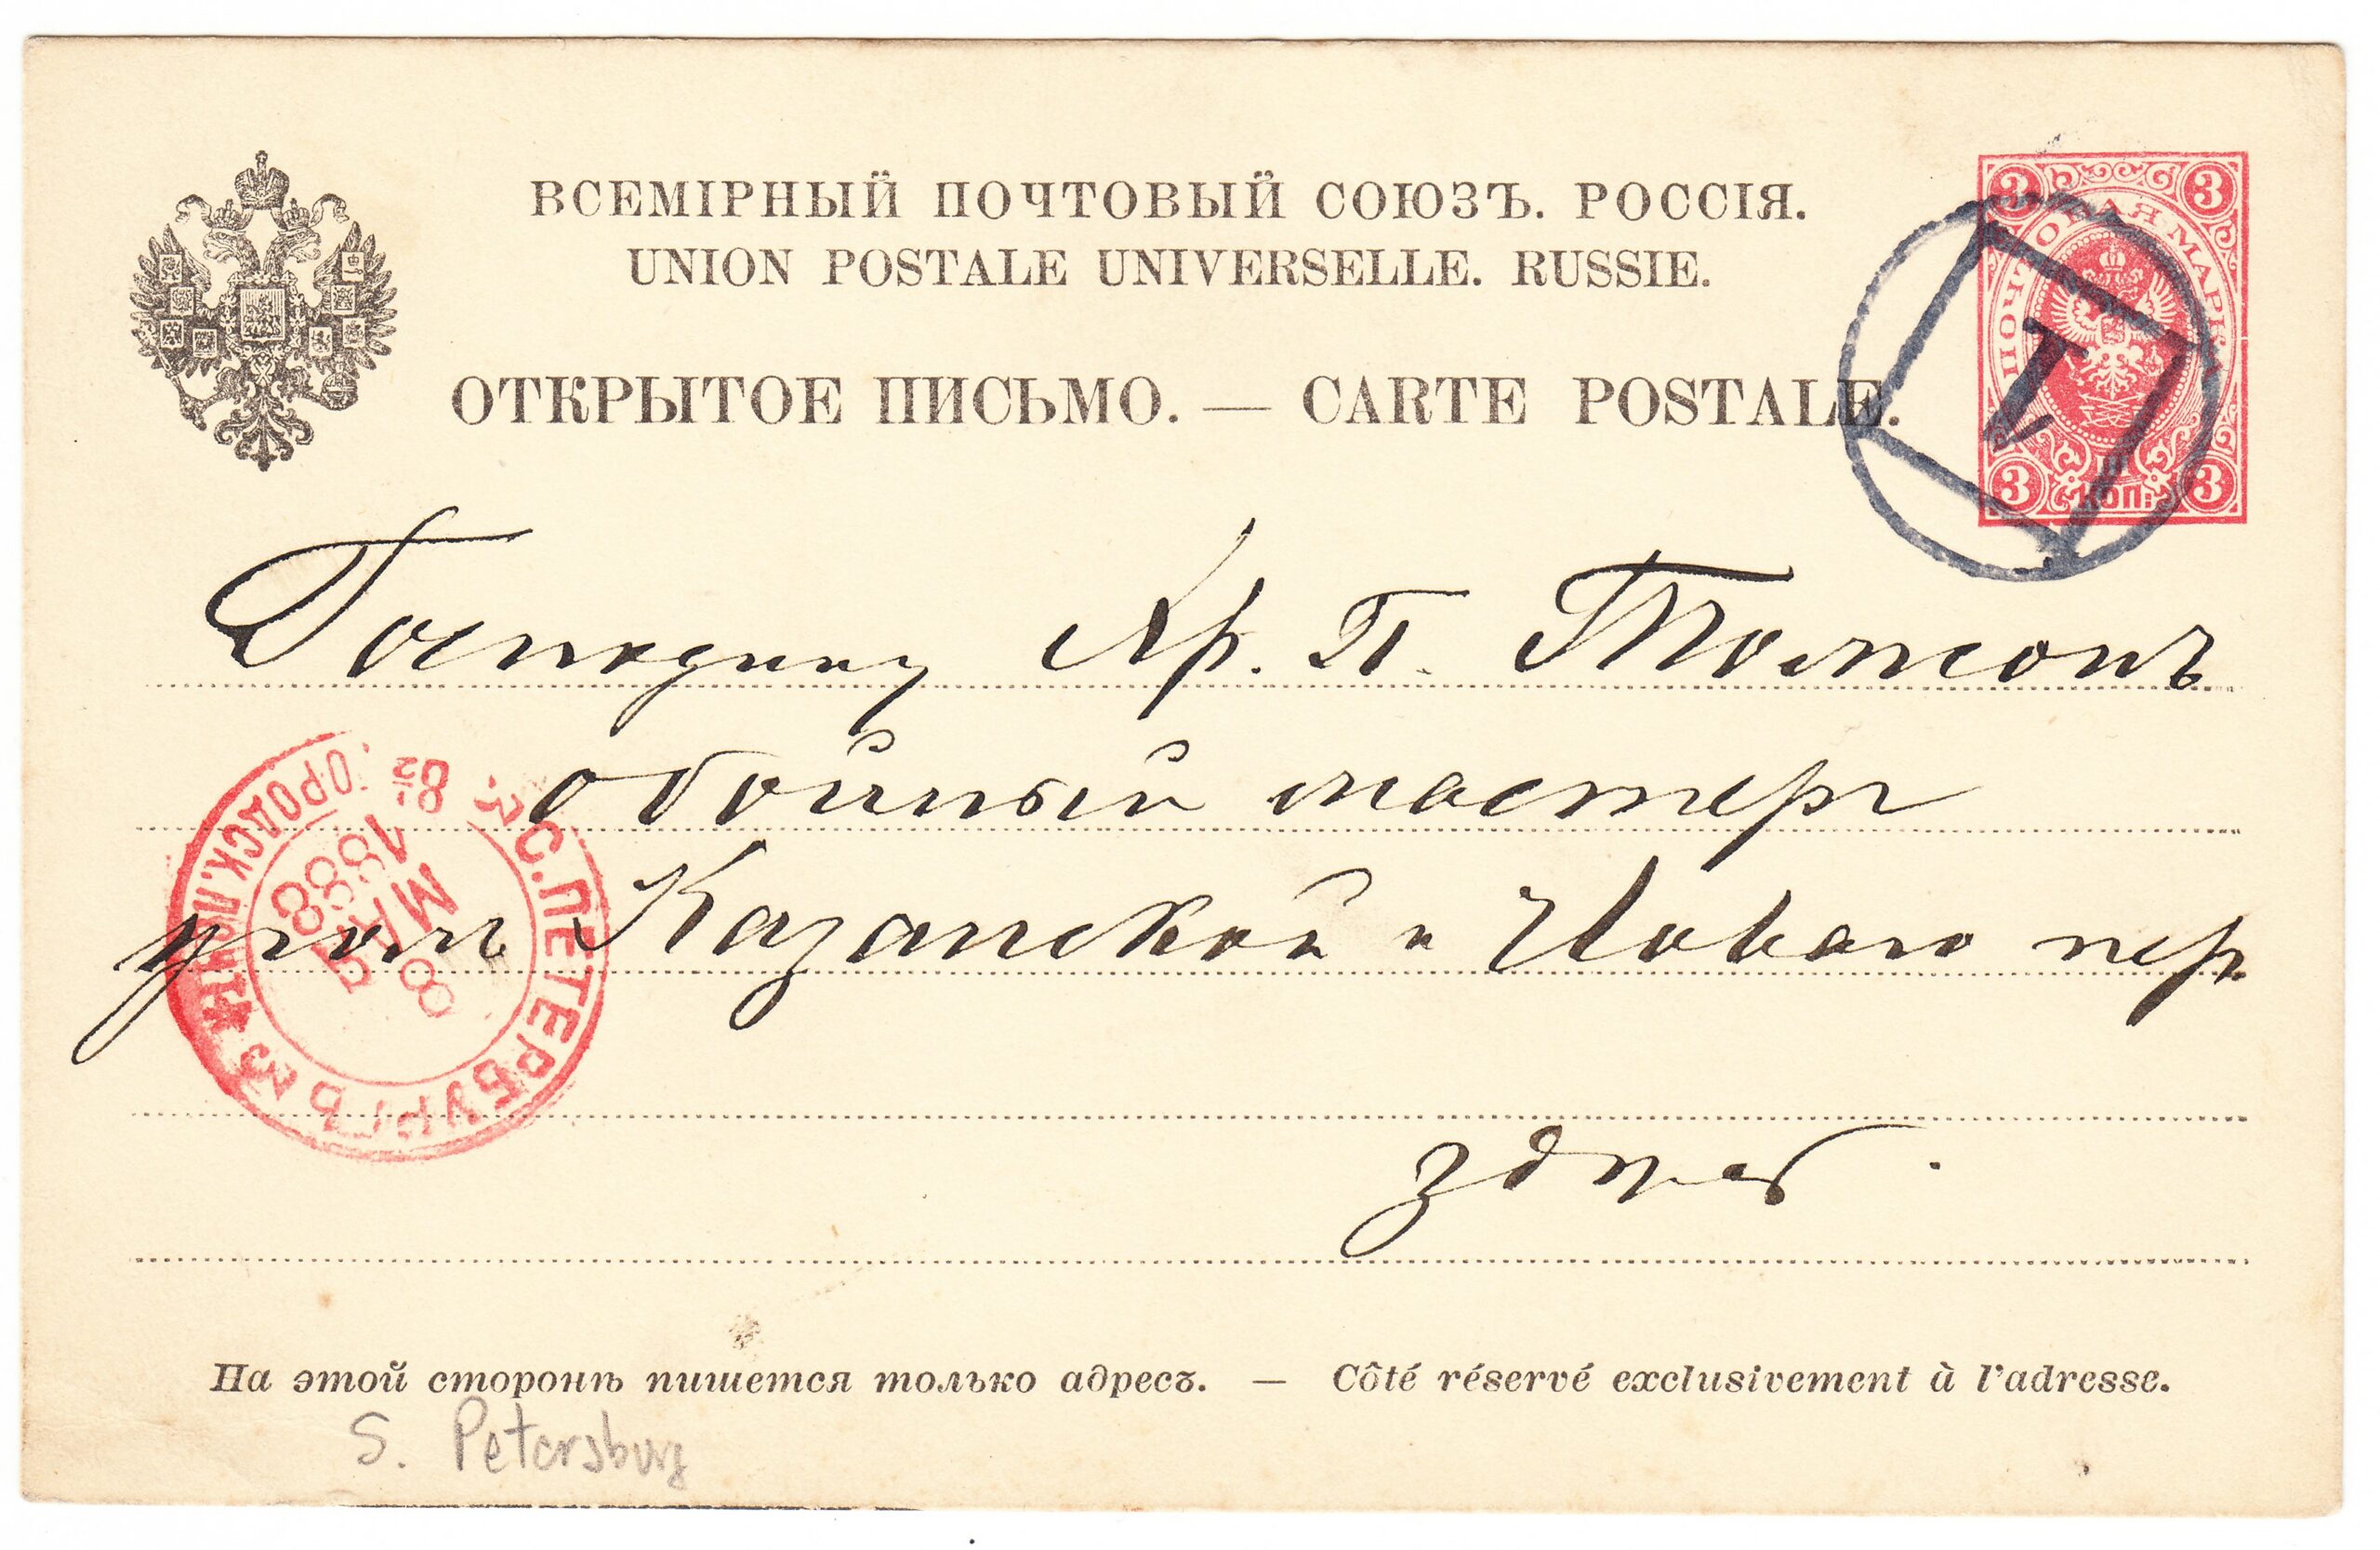 ВСЕМІРНЫЙ ПОЧТОВЫЙ СОЮЗЪ. РОССІЯ.
UNION POSTALE UNIVERSELLE. RUSSIE.
ОТКРЫТОЕ ПИСЬМО. — CARTE POSTALE.
3 3
ПОЧТОВАЯ МАРКА
3 КОП. 3
1
Господину Хр. П. Томсонъ
обойный мастеръ
уголъ Казанской и Новаго пер.
здѣсь.
С.ПЕТЕРБУРГЪ 3
ГОРОДСК. ПОЧТА
8 МАР
1888
На этой сторонѣ пишется только адресъ. — Côté réservé exclusivement à l'adresse.
S. Petersburg